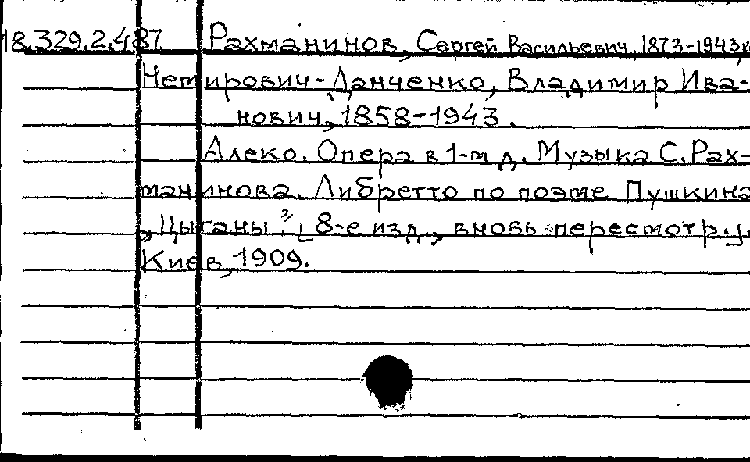 18.329.2.487 Рахманинов, Сергей Васильевич, 1873-1943 и
Немирович-Данченко, Владимир Ива-
нович, 1858-1943.
Алеко. Опера в 1-м д. Музыка С. Рах-
манинова. Либретто по поэме Пушкина
„Цыганы". 8-е изд., вновь пересмотр.
Киев, 1909.